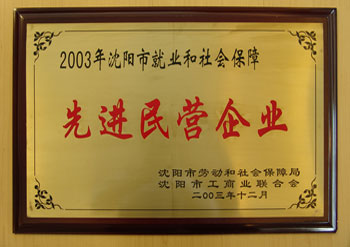 2003年沈阳市就业和社会保障
先进民营企业
沈阳市劳动和社会保障局
沈阳市工商业联合会
二00三年十二月